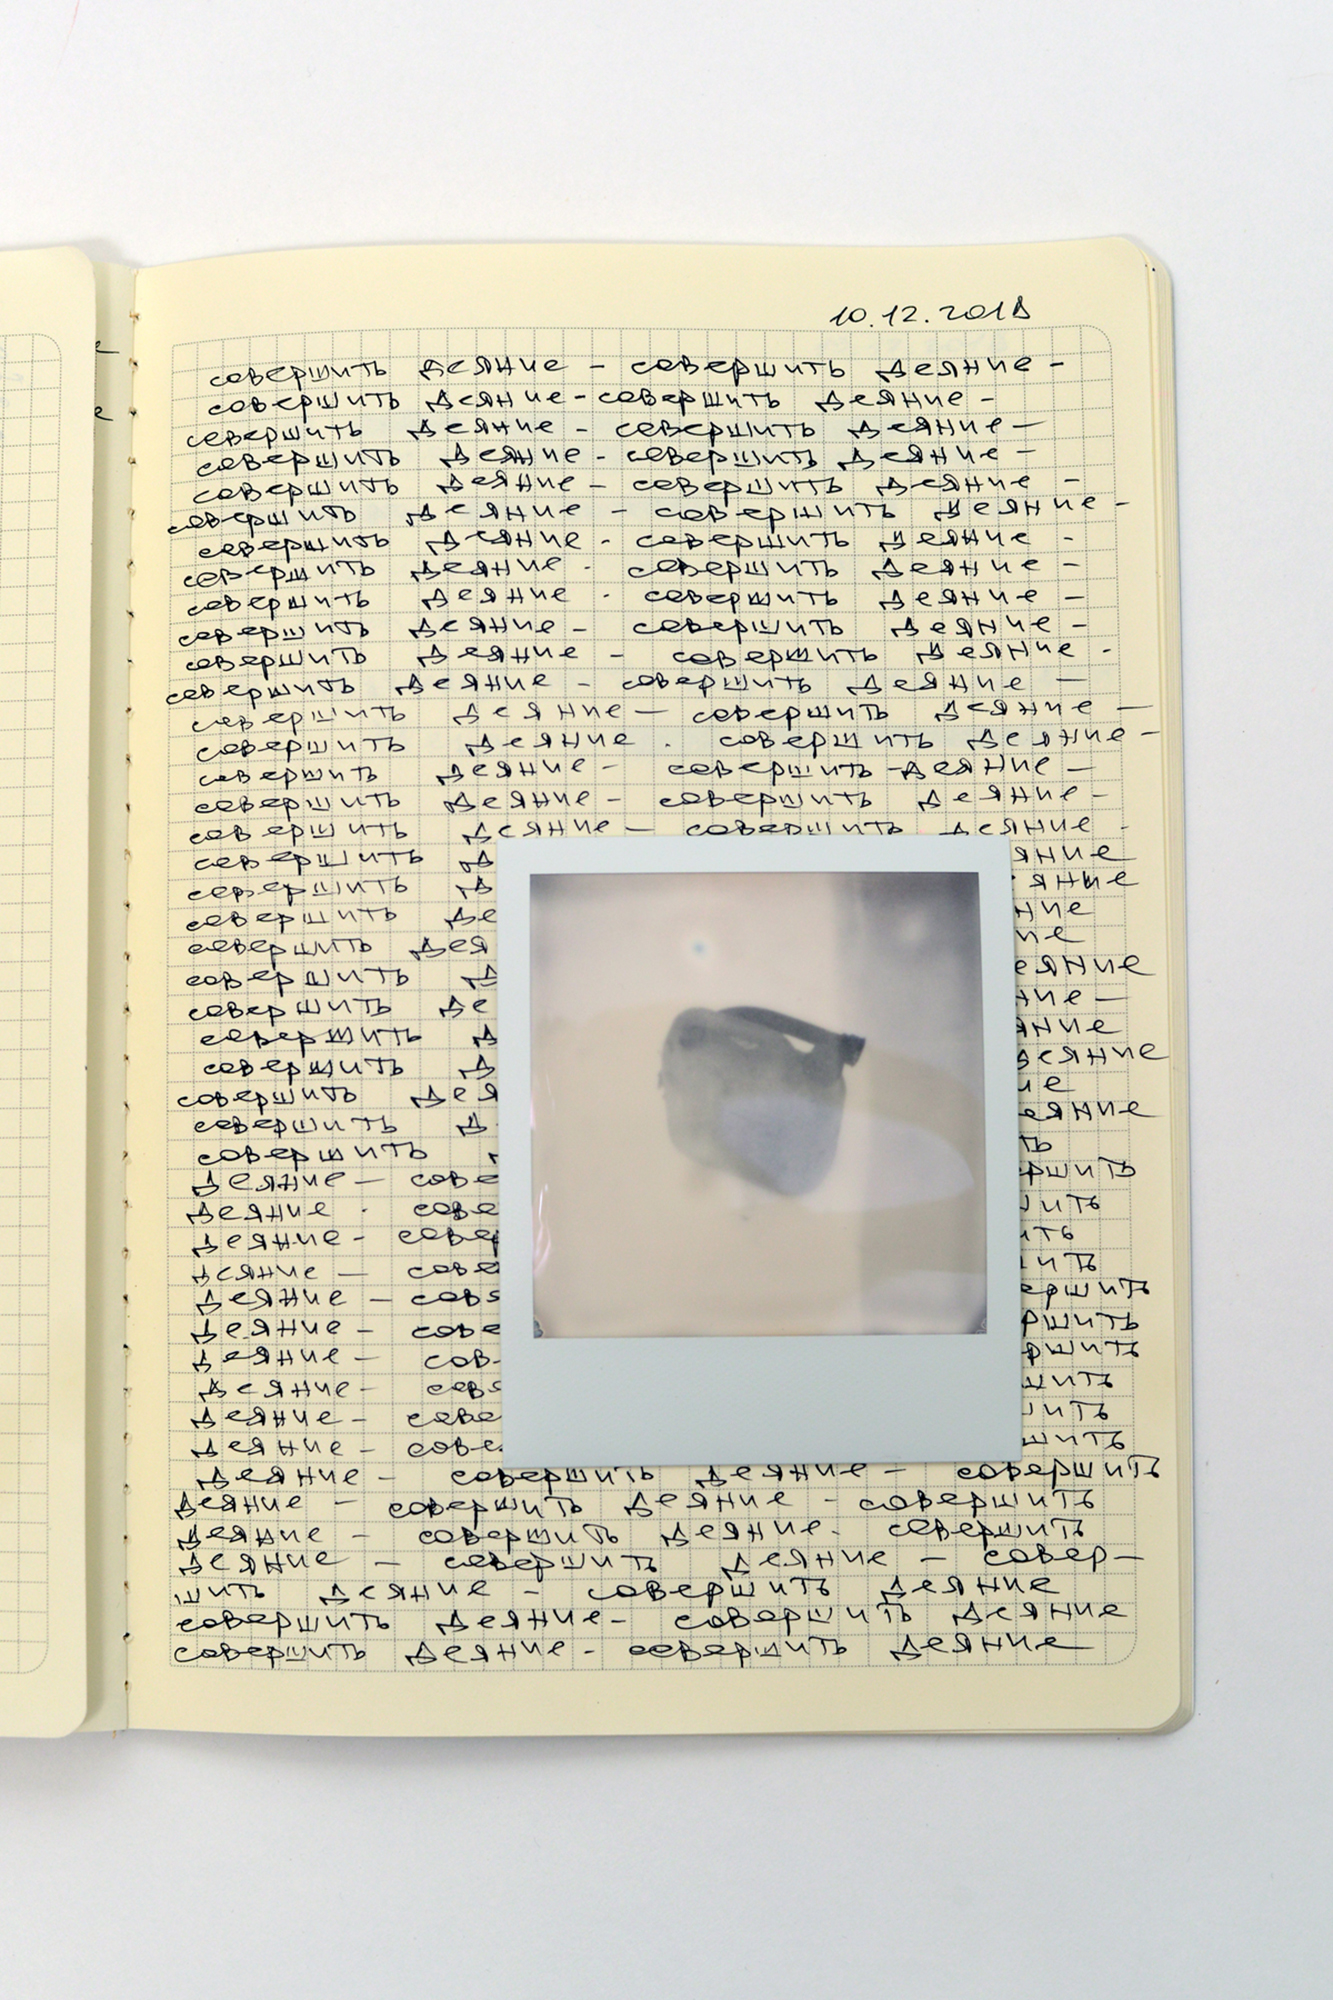 10.12.2018
совершить деяние - совершить деяние -
совершить деяние - совершить деяние -
совершить деяние - совершить деяние -
совершить деяние - совершить деяние -
совершить деяние - совершить деяние -
совершить деяние - совершить деяние -
совершить деяние - совершить деяние -
совершить деяние - совершить деяние -
совершить деяние - совершить деяние -
совершить деяние - совершить деяние -
совершить деяние - совершить деяние -
совершить деяние - совершить деяние -
совершить деяние - совершить деяние -
совершить деяние - совершить деяние -
совершить деяние - совершить -деяние -
совершить деяние - совершить деяние -
совершить деяние - совершить деяние -
совершить д яние
совершить д яние
совершить де ние
совершить дея ие
совершить д еяние
совершить де ние -
совершить д яние
совершить д деяние
совершить дея ие
совершить д еяние
совершить ть
деяние - сове ршить
деяние - сове шить
деяние - совер ить
деяние - сове ить
деяние - сове ершить
деяние - сове ршить
деяние - сов ршить
деяние - сове шить
деяние - сове шить
деяние - сове шить
деяние - совершить деяние - совершить
деяние - совершить деяние - совершить
деяние - совершить деяние - совершить
деяние - совершить деяние - совер-
шить деяние - совершить деяние
совершить деяние - совершить деяние
совершить деяние - совершить деяние